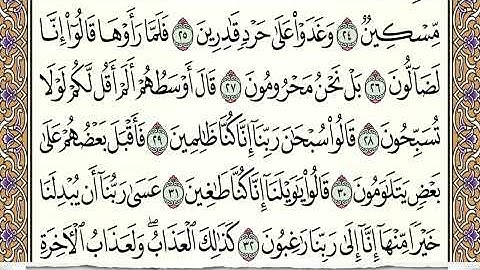 مِّسْكِينٌ ٢٤ وَغَدَوْا۟ عَلَىٰ حَرْدٍ قَٰدِرِينَ ٢٥ فَلَمَّا رَأَوْهَا قَالُوٓا۟ إِنَّا
لَضَآلُّونَ ٢٦ بَلْ نَحْنُ مَحْرُومُونَ ٢٧ قَالَ أَوْسَطُهُمْ أَلَمْ أَقُل لَّكُمْ لَوْلَا
تُسَبِّحُونَ ٢٨ قَالُوا۟ سُبْحَٰنَ رَبِّنَآ إِنَّا كُنَّا ظَٰلِمِينَ ٢٩ فَأَقْبَلَ بَعْضُهُمْ عَلَىٰ
بَعْضٍ يَتَلَٰوَمُونَ ٣٠ قَالُوا۟ يَٰوَيْلَنَآ إِنَّا كُنَّا طَٰغِينَ ٣١ عَسَىٰ رَبُّنَآ أَن يُبْدِلَنَا
خَيْرًا مِّنْهَآ إِنَّآ إِلَىٰ رَبِّنَا رَٰغِبُونَ ٣٢ كَذَٰلِكَ ٱلْعَذَابُ ۖ وَلَعَذَابُ ٱلْءَاخِرَةِ